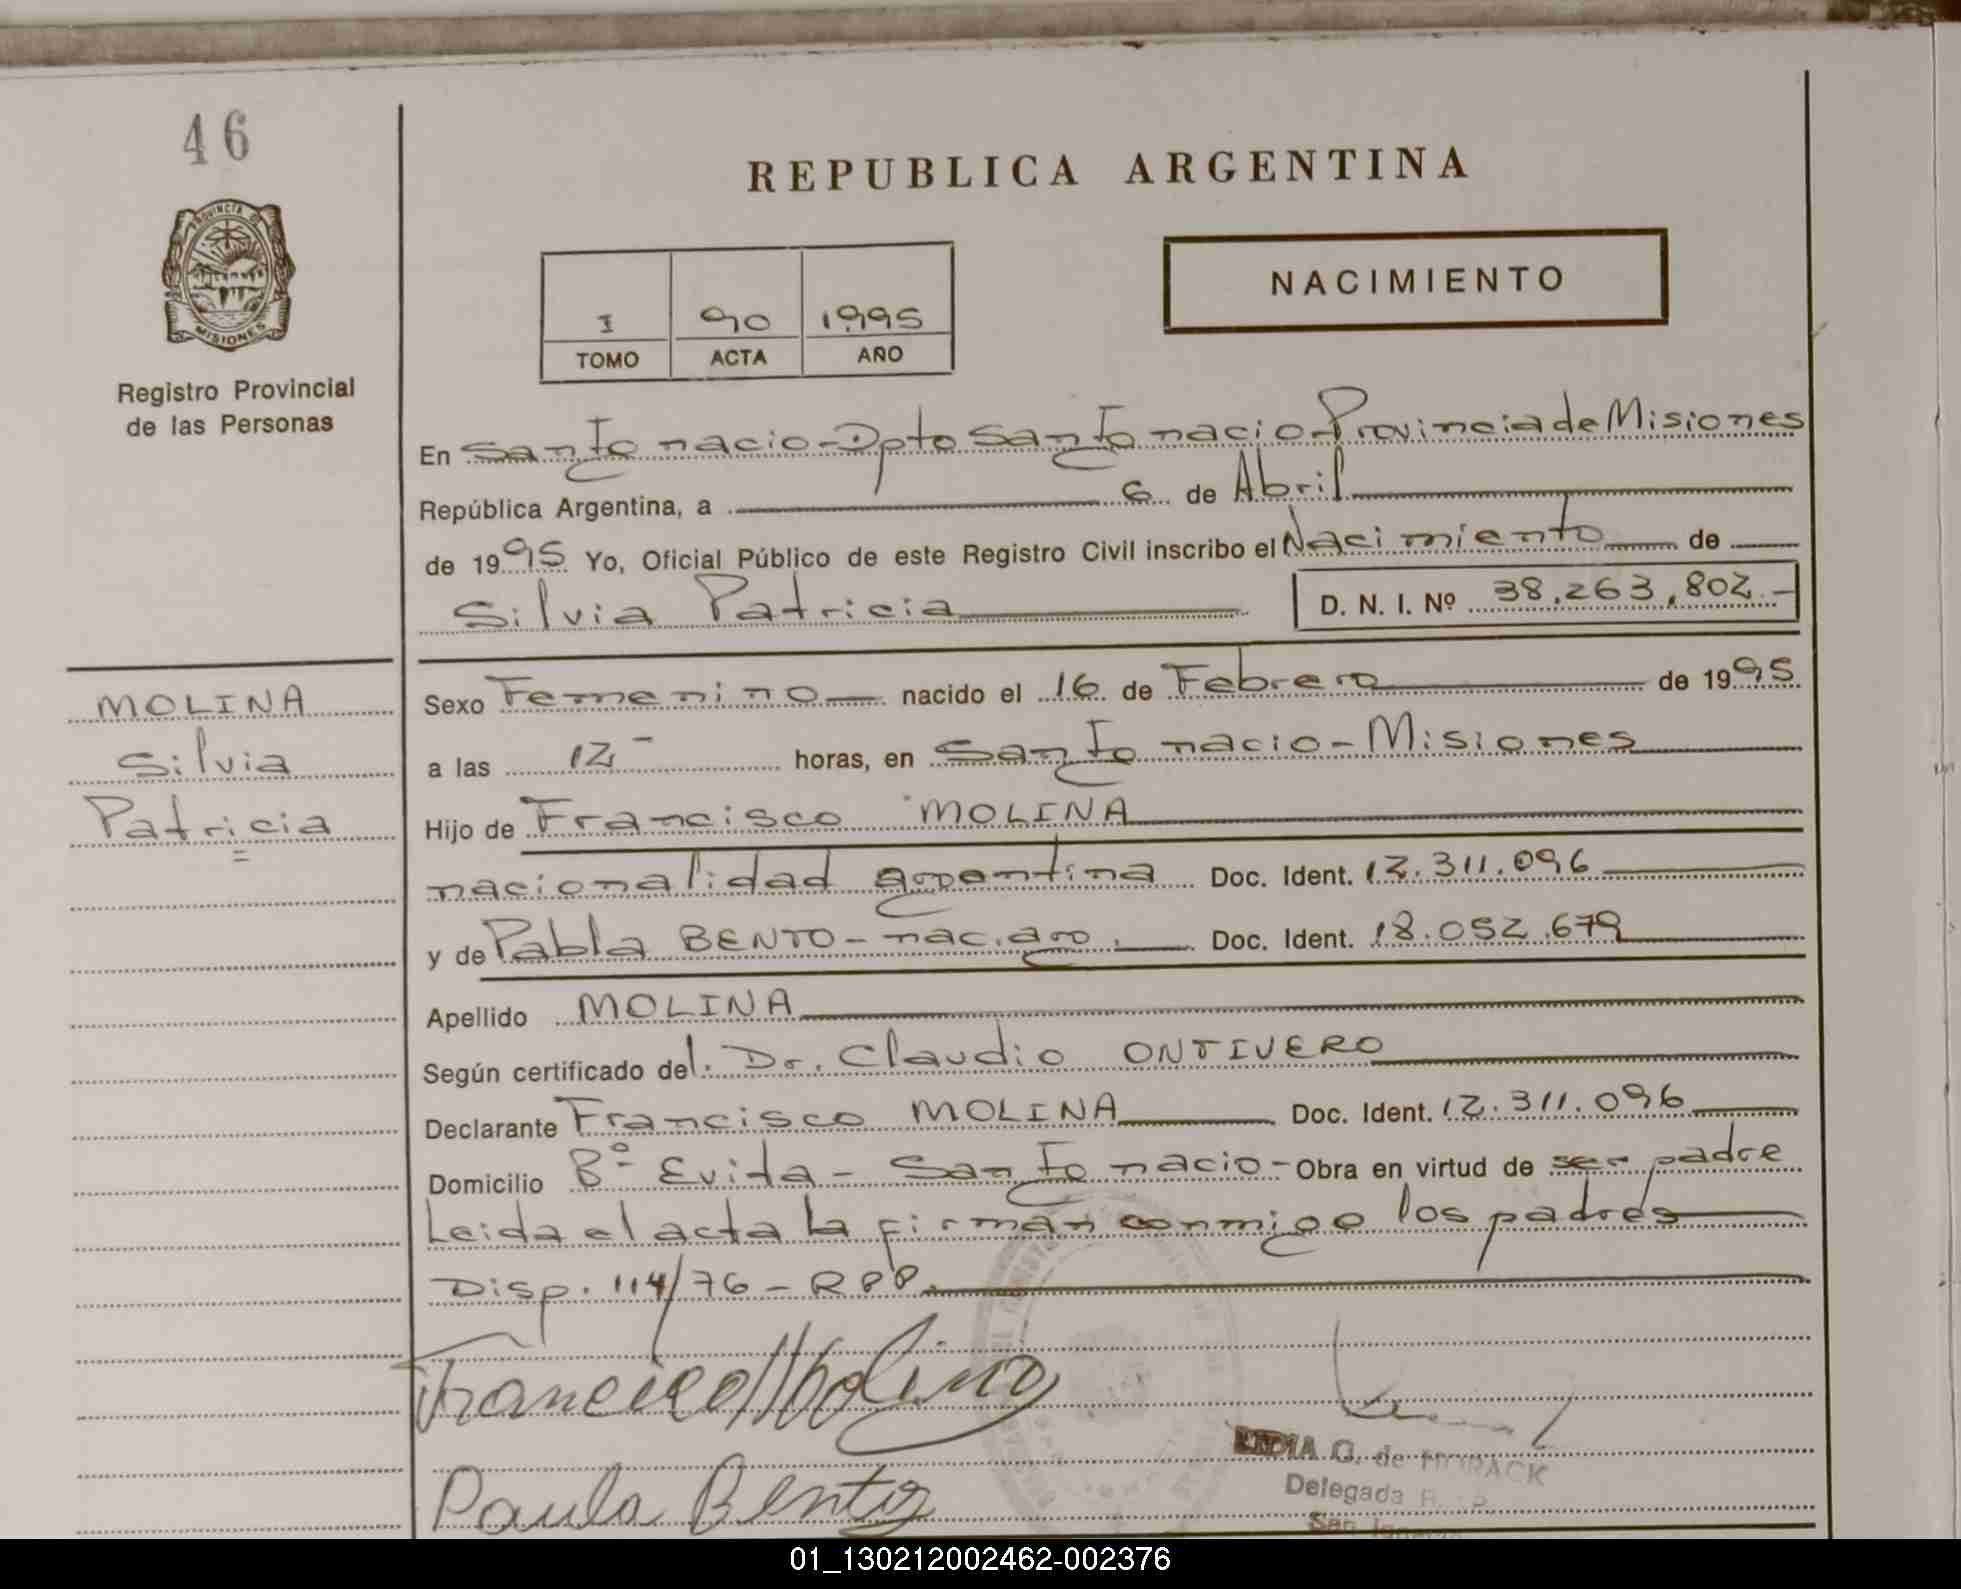 46
PROVINCIA DE
MISIONES
Registro Provincial
de las Personas
REPUBLICA ARGENTINA
I 90 1995
TOMO ACTA AÑO
NACIMIENTO
En San Ignacio - Dpto San Ignacio - Provincia de Misiones
República Argentina, a 6 de Abril
de 1995 Yo, Oficial Público de este Registro Civil inscribo el Nacimiento de
Silvia Patricia D. N. I. Nº 38.263.802.-
MOLINA
Silvia
Patricia
Sexo Femenino nacido el 16 de Febrero de 1995
a las 12- horas, en San Ignacio - Misiones
Hijo de Francisco MOLINA
nacionalidad argentina Doc. Ident. 12.311.096
y de Pabla BENTO - nac. arg. Doc. Ident. 18.052.679
Apellido MOLINA
Según certificado del. Dr. Claudio ONTIVERO
Declarante Francisco MOLINA Doc. Ident. 12.311.096
Domicilio Bº Evita - San Ignacio - Obra en virtud de ser padre
Leida el acta la firman conmigo los padres
Disp. 114/76 - RPP.
Francisco Molina
Paula Bento
LIDIA G. de
Delegada R.
San Ignacio
01_130212002462-002376